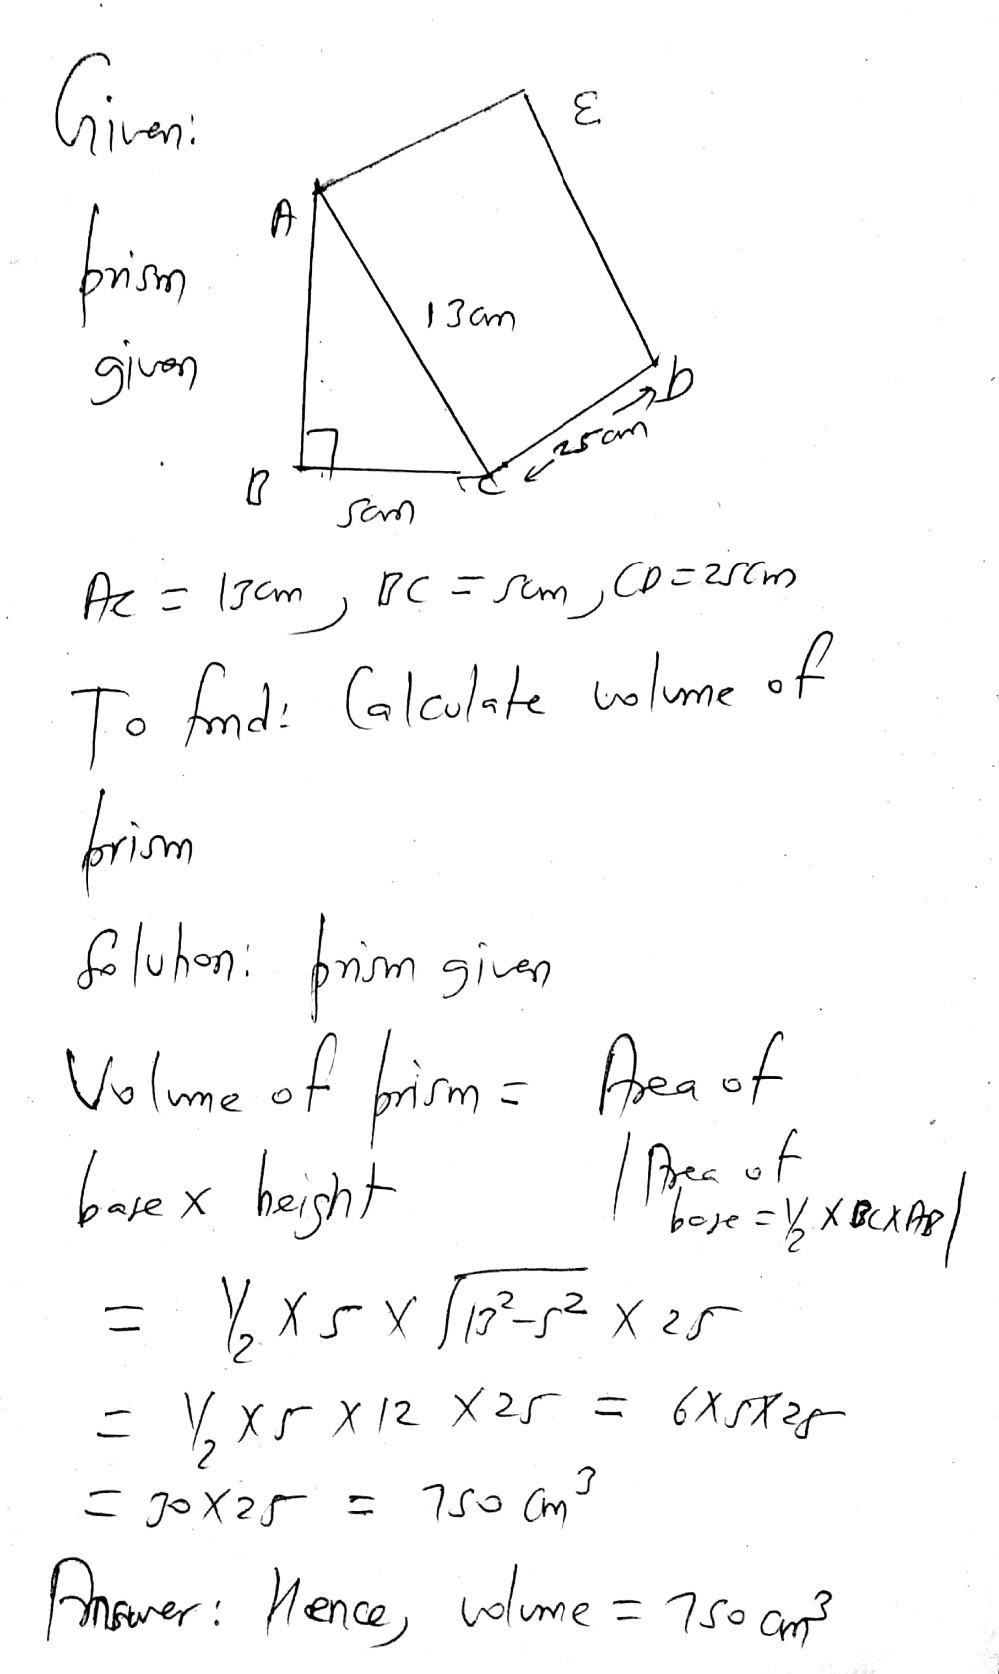 Given:
ε
A
prism
13cm
given
D
25cm
B
C
5cm
AC = 13cm, BC = 5cm, CD = 25cm
To find: Calculate volume of
prism
Solution: prism given
Volume of prism = Area of
base x height | Area of
base = 1/2 X BC X AB |
= 1/2 X 5 X √13²-5² X 25
= 1/2 X 5 X 12 X 25 = 6X5X25
= 30X25 = 750 cm³
Answer: Hence, volume = 750 cm³